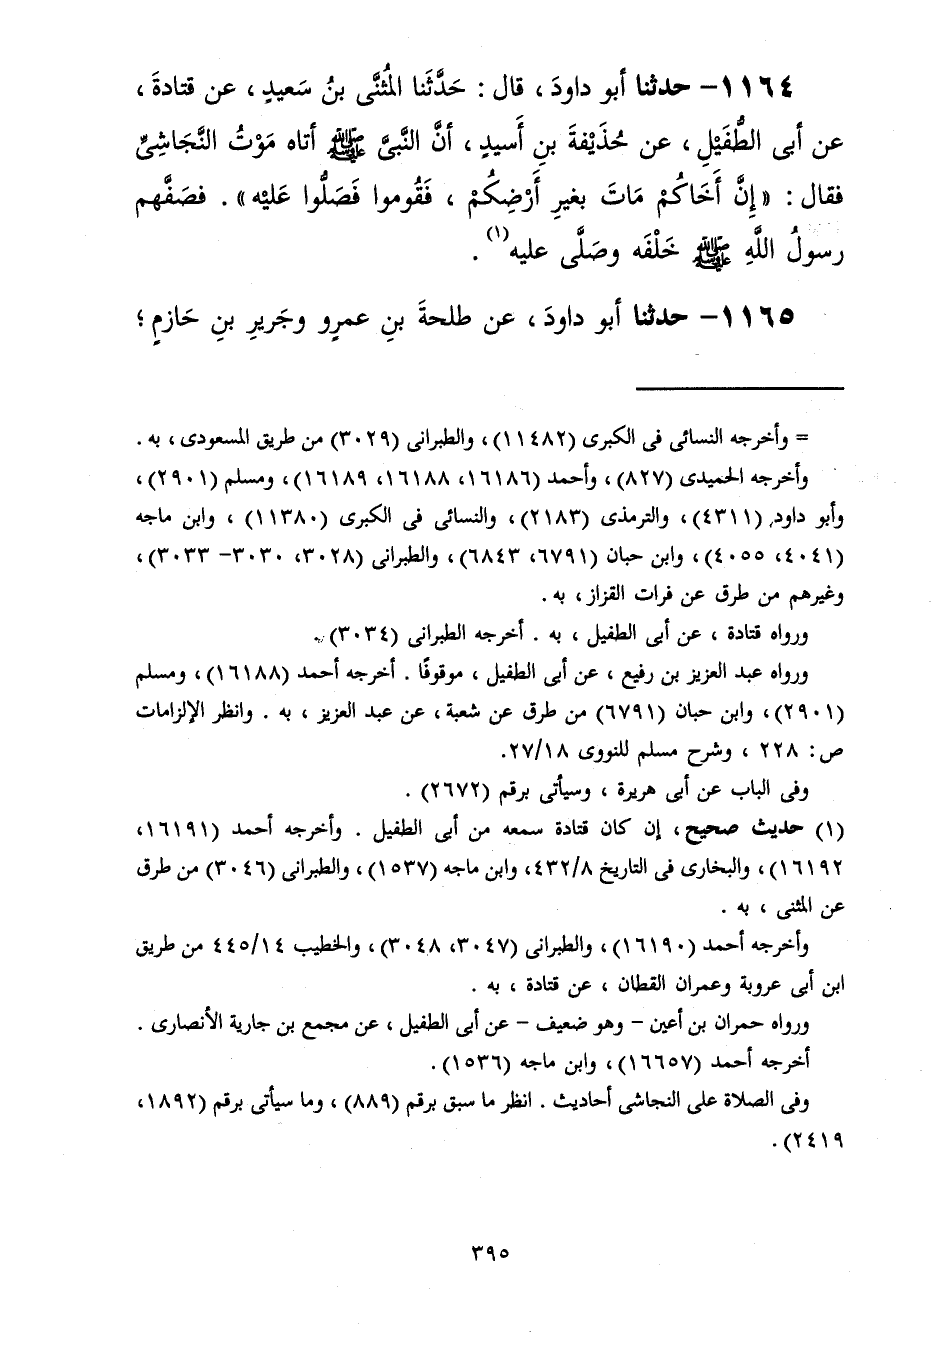 ١١٦٤- حدثنا أبو داودَ ، قال : حَدَّثَنا المُثنَّى بنُ سَعيدٍ ، عن قتادةَ ،
عن أبى الطُّفَيْلِ ، عن حُذَيْفةَ بنِ أَسيدٍ ، أنَّ النَّبىَّ ﷺ أتاه مَوْتُ النَّجَاشِىِّ
فقال : «إنَّ أَخَاكُمْ مَاتَ بغيرِ أَرْضِكُمْ ، فَقُوموا فَصَلُّوا عَلَيْه» . فصَفَّهم
رسولُ اللَّهِ ﷺ خَلْفَه وصَلَّى عليه(١) .
١١٦٥- حدثنا أبو داودَ ، عن طلحةَ بنِ عمرٍو وجَريرِ بنِ حَازمٍ ؛
= وأخرجه النسائى فى الكبرى (١١٤٨٢)، والطبرانى (٣٠٢٩) من طريق المسعودى ، به .
وأخرجه الحميدى (٨٢٧) ، وأحمد (١٦١٨٦، ١٦١٨٨، ١٦١٨٩)، ومسلم (٢٩٠١) ،
وأبو داود (٤٣١١)، والترمذى (٢١٨٣)، والنسائى فى الكبرى (١١٣٨٠) ، وابن ماجه
(٤٠٤١، ٤٠٥٥)، وابن حبان (٦٧٩١، ٦٨٤٣)، والطبرانى (٣٠٢٨، ٣٠٣٠- ٣٠٣٣) ،
وغيرهم من طرق عن فرات القزاز ، به .
ورواه قتادة ، عن أبى الطفيل ، به . أخرجه الطبرانى (٣٠٣٤) .
ورواه عبد العزيز بن رفيع ، عن أبى الطفيل ، موقوفًا . أخرجه أحمد (١٦١٨٨) ، ومسلم
(٢٩٠١)، وابن حبان (٦٧٩١) من طرق عن شعبة ، عن عبد العزيز ، به . وانظر الإلزامات
ص : ٢٢٨ ، وشرح مسلم للنووى ٢٧/١٨.
وفى الباب عن أبى هريرة ، وسيأتى برقم (٢٦٧٢) .
(١) حديث صحيح ، إن كان قتادة سمعه من أبى الطفيل . وأخرجه أحمد (١٦١٩١،
١٦١٩٢)، والبخارى فى التاريخ ٤٣٢/٨، وابن ماجه (١٥٣٧) ، والطبرانى (٣٠٤٦) من طرق
عن المثنى ، به .
وأخرجه أحمد (١٦١٩٠) ، والطبرانى (٣٠٤٧، ٣٠٤٨)، والخطيب ٤٤٥/١٤ من طريق
ابن أبى عروبة وعمران القطان ، عن قتادة ، به .
ورواه حمران بن أعين - وهو ضعيف - عن أبى الطفيل ، عن مجمع بن جارية الأنصارى .
أخرجه أحمد (١٦٦٥٧) ، وابن ماجه (١٥٣٦) .
وفى الصلاة على النجاشى أحاديث . انظر ما سبق برقم (٨٨٩) ، وما سيأتى برقم (١٨٩٢،
٢٤١٩) .
٣٩٥